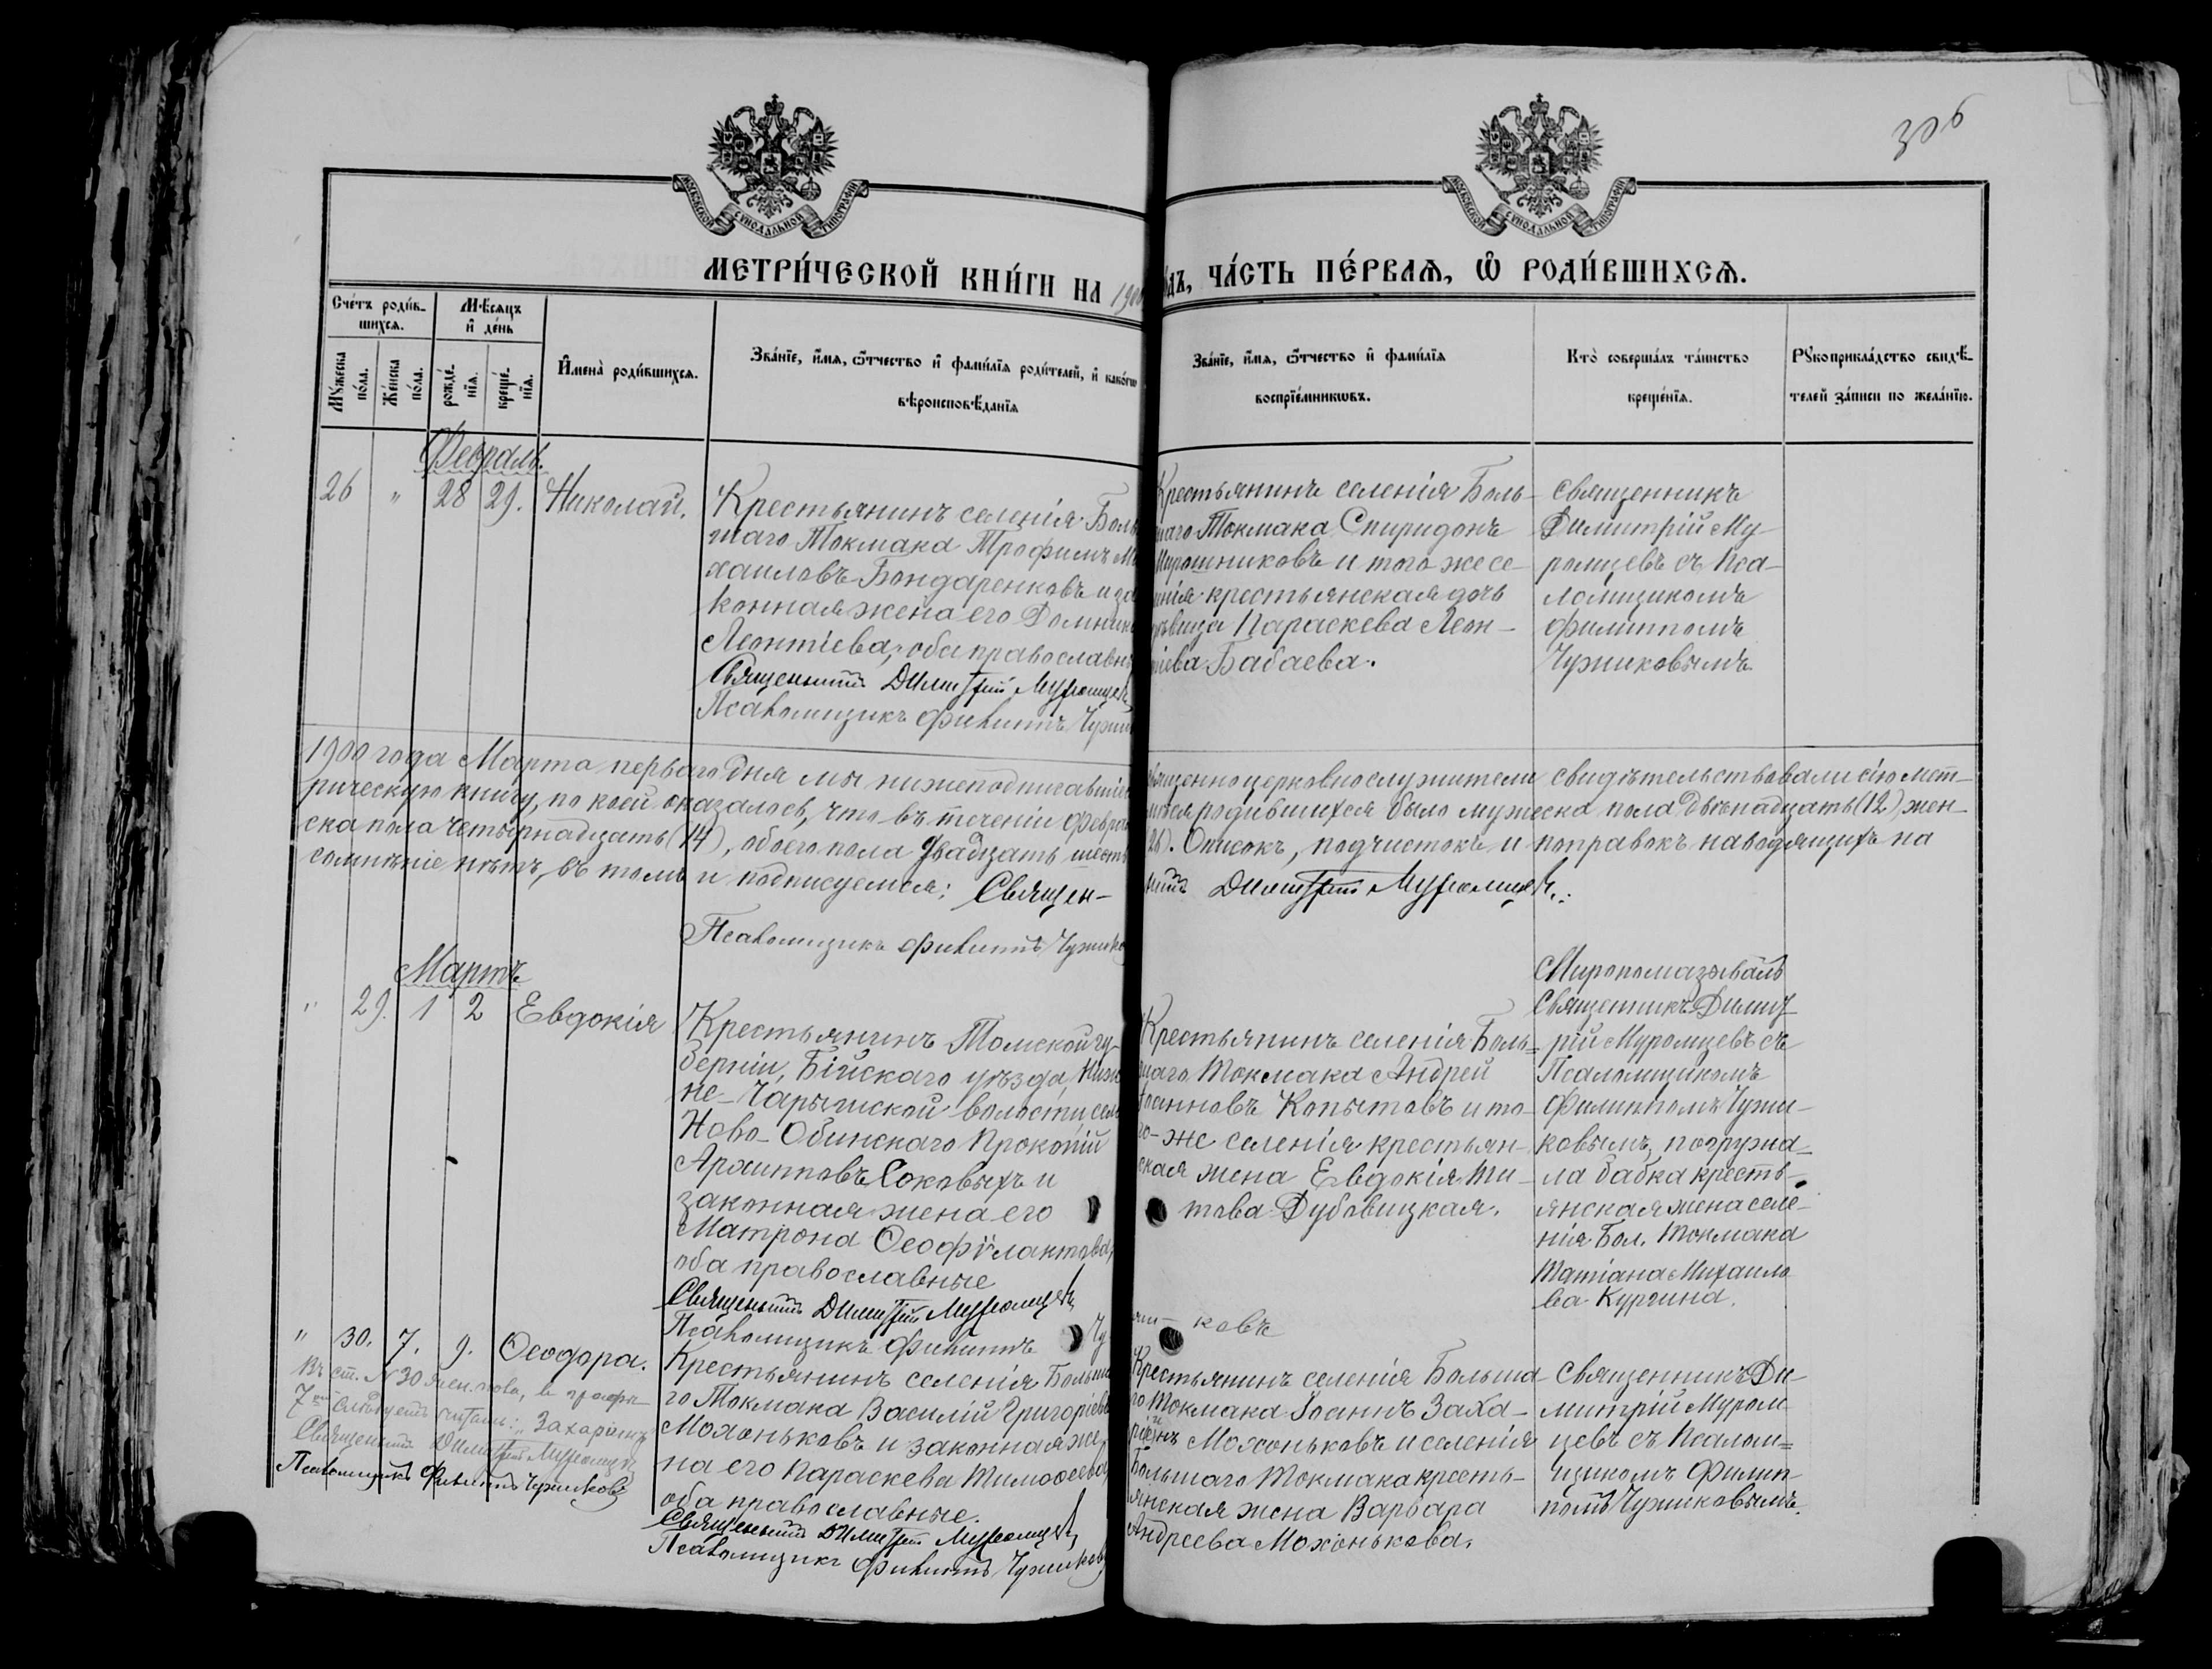 306
МОСКОВСКОЙ СѴНОДАЛЬНОЙ ТИПОГРАФІИ
МОСКОВСКОЙ СѴНОДАЛЬНОЙ ТИПОГРАФІИ
МЕТРИ́ЧЕСКОЙ КНИ́ГИ НА 1900
ДЪ, ЧА́СТЬ ПЕ́РВАѦ, Ѽ РОДИ́ВШИХСѦ.
Сче́тъ роди́в-
шихсѧ.
Мѣ́сѧцъ
и҆ де́нь
Мꙋ́жеска
по́ла.
Же́нска
по́ла.
рожде́-
нїѧ.
креще́-
нїѧ.
И҆мена̀ роди́вшихсѧ.
Зва́нїе, и҆́мѧ, ѻ҆́тчество и҆ фамы́лїѧ роди́телей, и҆ како́гѡ
вѣроисповѣ́данїѧ
Зва́нїе, и҆́мѧ, ѻ҆́тчество и҆ фами́лїѧ
воспрїе́мникѡвъ.
Кто̀ соверша́лъ та́инство
креще́нїѧ.
Рꙋкоприкла́дство свидѣ́-
телей за́писи по жела́нїю.
Февраль.
26 " 28 29. Николай.
Крестьянинъ селенія Боль
шаго Токмака Трофимъ Ми
хаиловъ Бондаренковъ и за
конная жена его Домника
Леонтіева; оба православн
Священникъ Димитрій Муромцевъ
Псаломщикъ Филиппъ Чуж
Крестьянинъ селенія Боль-
шаго Токмака Спиридонъ
Мирошниковъ и того же се-
ленія крестьянская дочь
дѣвица Параскева Леон-
тіева Бабаева.
Священникъ
Димитрій Му-
ромцевъ съ Пса-
ломщикомъ
Филиппомъ
Чужиковымъ
1900 года Марта перваго дня мы нижеподписавшіес
священноцерковнослужители свидѣтельствовали сію мет-
рическую книгу, по коей оказалось, что въ теченіи Февра
мѣся родившихся было мужеска пола двѣнадцать (12), жен-
ска пола четырнадцать (14), обоего пола двадцать шесть
(26). Описокъ, подчистокъ и поправокъ наводящихъ на
сомнѣніе нѣтъ, въ томъ и подписуемся: Священ-
никъ Димитрій Муромцевъ.
Псаломщикъ Филиппъ Чужико
Мартъ
" 29. 1 2 Евдокія
Крестьянинъ Томской гу-
берніи, Бійскаго уѣзда, Ниж
не-Чарышской волости, села
Ново-Обинскаго Прокопій
Архипповъ Соковыхъ и
законная жена его
Матрона Ѳеофилактова,
оба православные
Священникъ Димитрій Муромцевъ
Псаломщикъ Филиппъ Чу
жи- ковъ
Крестьянинъ селенія Боль=
шаго Токмака Андрей
Іоанновъ Копытовъ и то-
го-же селенія крестьян-
ская жена Евдокія Ти-
това Дубовицкая.
Миропомазывалъ
Священникъ Димит-
рій Муромцевъ съ
Псаломщикомъ
Филиппомъ Чужи-
ковымъ, погружа-
ла бабка кресть-
янская жена селе-
нія Бол. Токмака
Татіана Михаило
ва Кургина.
" 30. 7. 9. Ѳеодора.
Въ ст. № 30 жен. пола, въ графѣ
7ой слѣдуетъ читать: "Захаріинъ
Священникъ Димитрій Муромцевъ
Псаломщикъ Филиппъ Чужиковъ
Крестьянинъ селенія Больша
го Токмака Василій Григорьевъ
Мохоньковъ и законная же-
на его Параскева Тимоѳеева,
оба православные.
Священникъ Димитрій Муромцевъ
Псаломщикъ Филиппъ Чужиковъ
Крестьянинъ селенія Больша-
го Токмака Іоаннъ Заха-
ріинъ Мохоньковъ и селенія
Большаго Токмака кресть-
янская жена Варвара
Андреева Мохонькова.
Священникъ Ди-
митрій Муром
цевъ съ Псалом=
щикомъ Филип-
помъ Чужиковымъ.